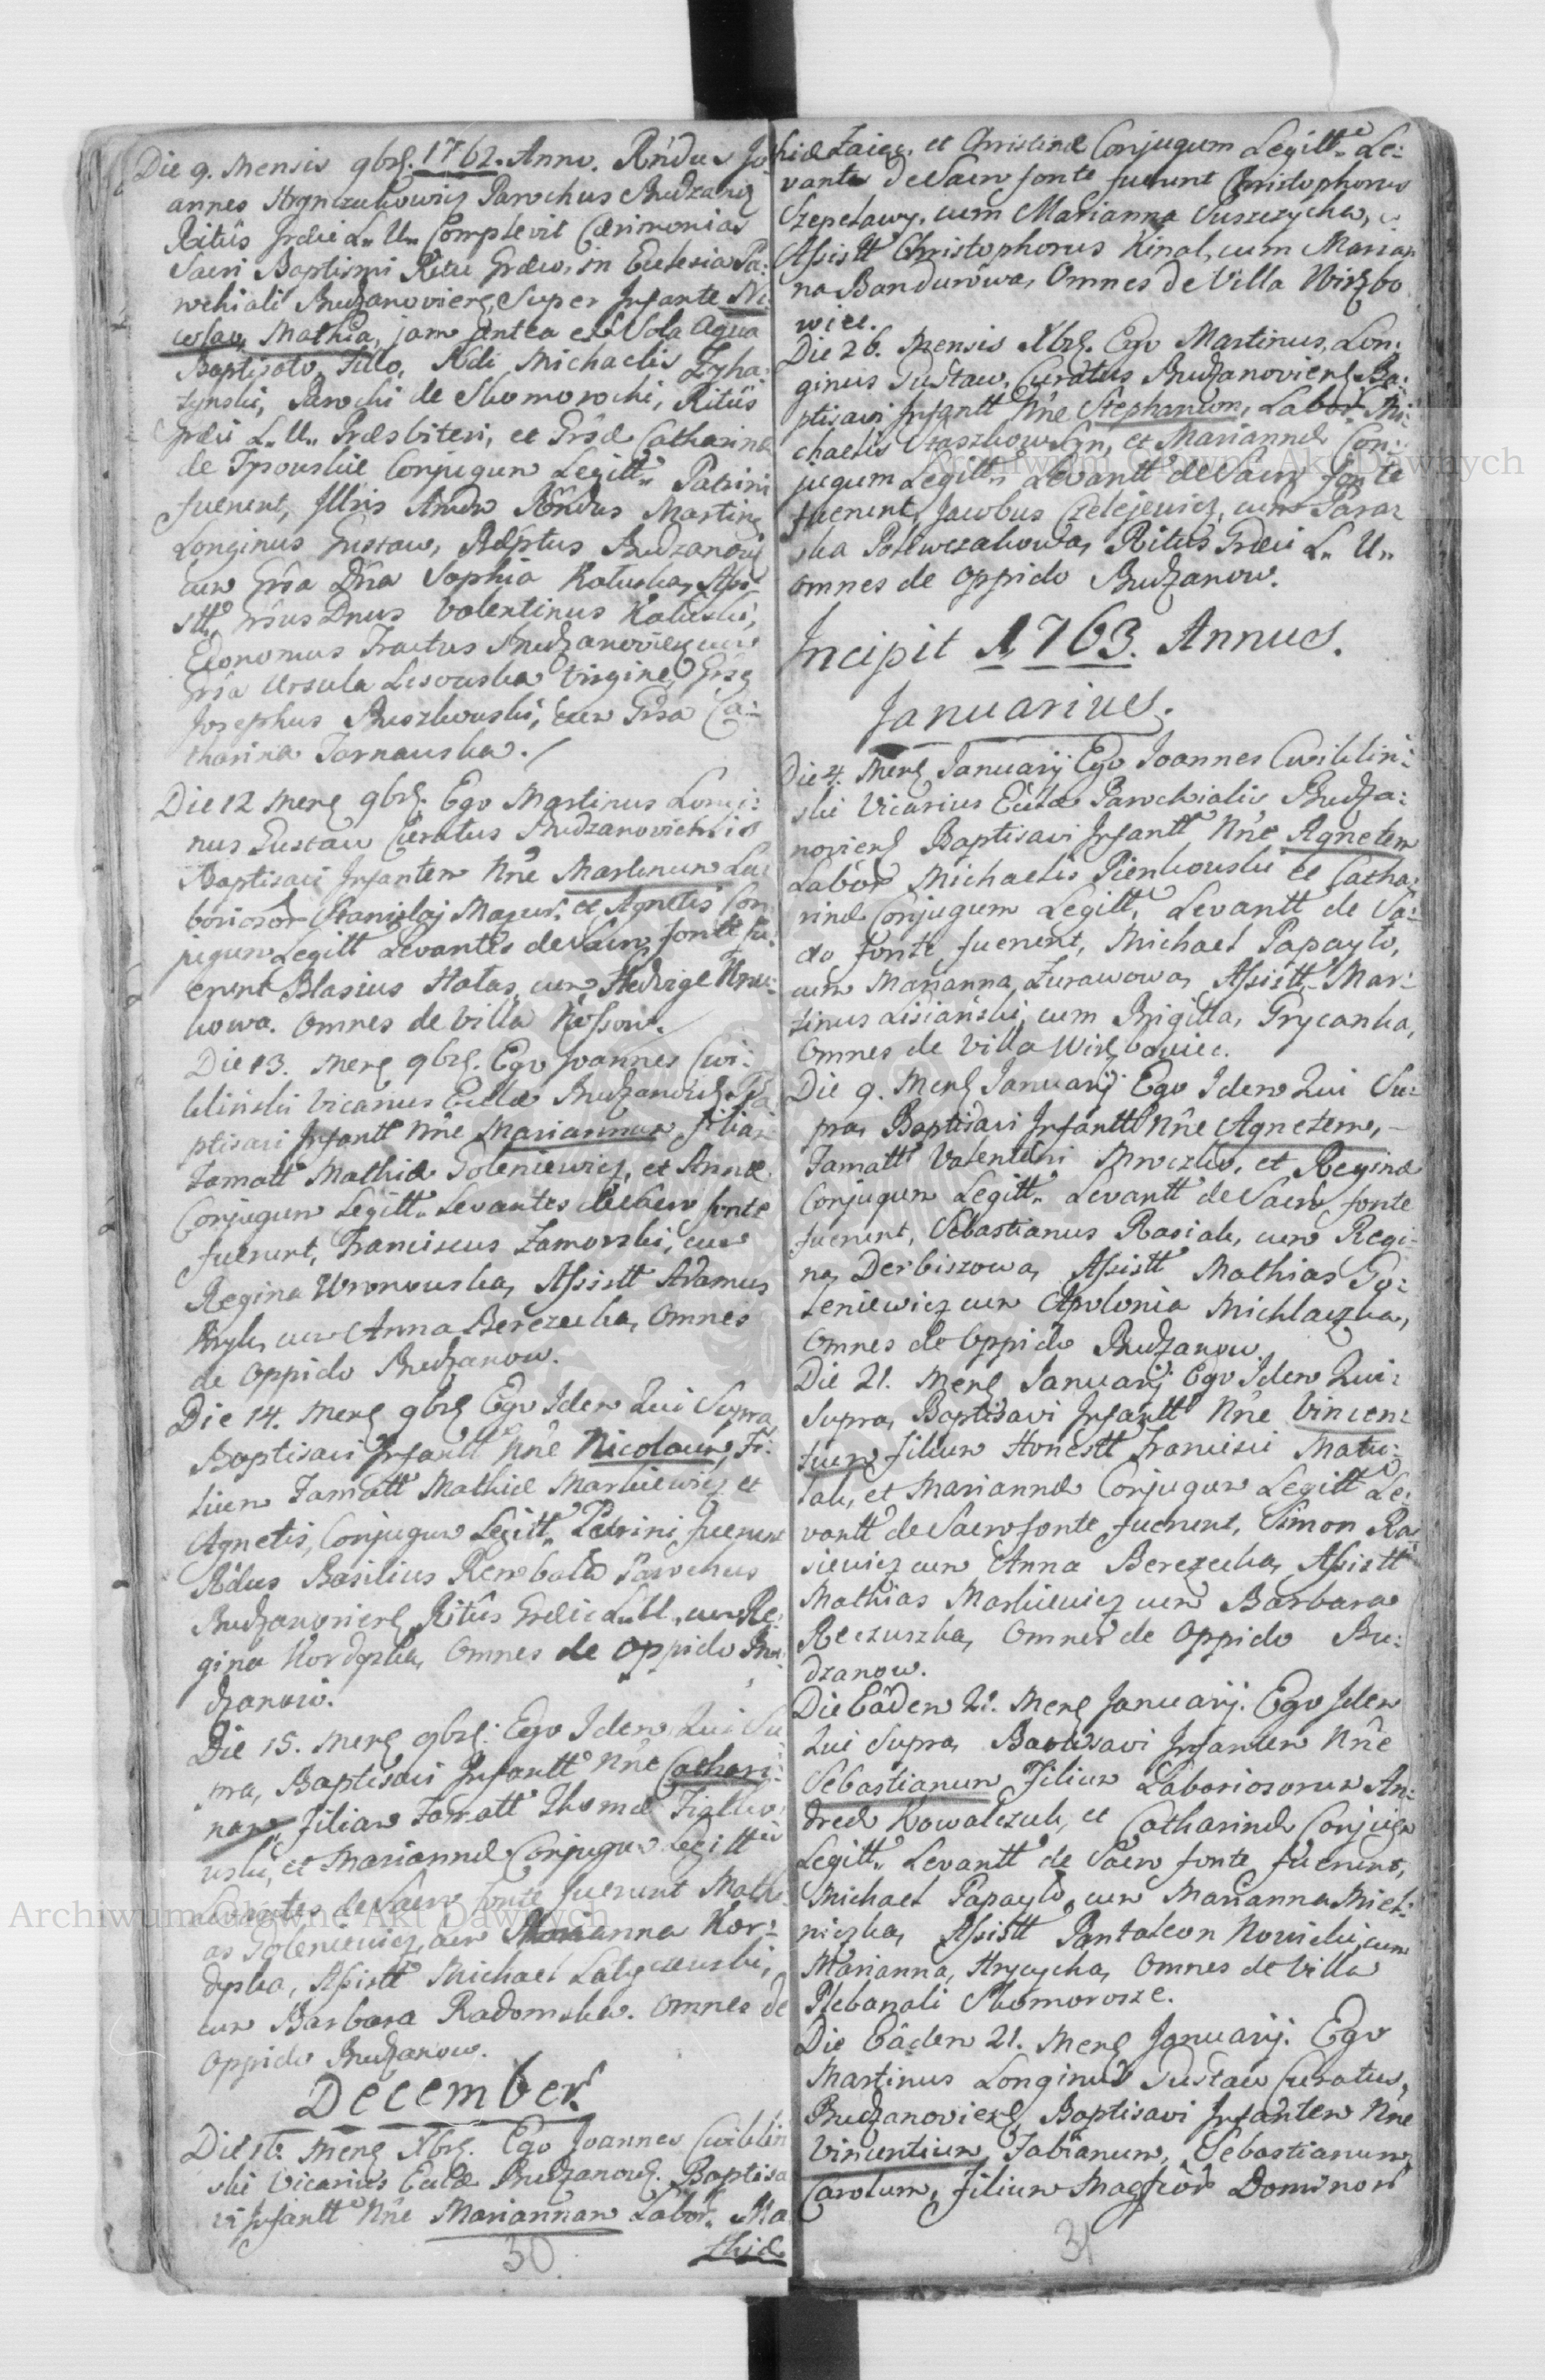 Die 9. Mensis 9brs. 1762. Anno. Rndus Jo
annes Hrynczukowicz Parochus Budzano
Ritûs Grdci L. U. Complevit Cærimonias
Sacri Baptismi Ritu Græco, in Ecclesia Pa:
rochiali Budzanovien, Super Infante Ni
colao, Mathia, jam antea ex Sola Aqua
Baptisato, Filio, Rdi Michaelis
Parochi de Skomorochi, Ritûs
Græci L. U. Præsbiteri, et Grsæ Catharinæ
de Conjugum Legitt. Patrini
fuerunt, Illris Rndus Martin
Longinus Gustaw, Budzanov
cum Grsa Dna Sophia Kaluska, Assi
stt. Grsus Dnus Valentinus Kaluski,
Economus Tractus Budzanovien cum
Grsa Ursula Lisowska Virgine, Grsus
Josephus Ruszkowski, cum Grsa Ca:
tharina Tarnawska.
Die 12 Mens 9brs. Ego Martinus Longi:
nus Gustaw Curatus Budzanoviensis
Baptisavi Infantem Nne Martinum La
boriosor Stanislaj Mazur, et Agnetis Con
jugum Legitt Levantes de Sacro fonte fu:
erunt Blasius Hałas, cum Hedvige
kowa. Omnes de Villa Kossow.
Die 13. Mens 9brs. Ego Joannes Cwi:
kliński Vicarius Eccle Budzanovi. Ba
ptisavi Infantt Nne Mariannam filiam
Famatt Mathiæ Goleniewicz, et Annæ
Conjugum Legitt. Levantes de Sacro fonte
fuerunt, Franciscus Zamorski, cum
Regina Wronowska, Assistt Adamus
Kryk, cum Anna Berezecka, Omnes
de Oppido Budzanow.
Die 14. Mens 9brs Ego Idem Qui Supra
Baptisavi Infantt Nne Nicolaum, Fi:
lium Famatt Mathiæ Markiewicz et
Agnetis, Conjugum Legitt. Patrini fuerunt
Rdus Basilius Parochus
Budzanovien Ritûs Grdci L. U., cum Re:
gina Kordyska, Omnes de Oppido Bu
dzanow.
Die 15. Mens 9brs. Ego Idem Qui Su
pra, Baptisavi Infantt Nne Cathari:
nam, filiam Famatt Thomæ
wski, et Mariannæ Conjugum Legitt
Levantes de Sacro fonte fuerunt Math
as Goleniewicz, cum Marianna Kor:
dyska, Assistt Michael
cum Barbara Radomska. Omnes de
Oppido Budzanow.
December.
Die 16. Mens Xbrs. Ego Joannes Cwiklin
ski Vicarius Eccle Budzanovi. Baptisa
vi Infantt Nne Mariannam Labor. Ma
thiæ
30
thiæ Zaiąc, et Christinæ Conjugum Legitt. Le:
vantes de Sacro fonte fuerunt Christophorus
Szpetawy, cum Marianna Suszczycha,
Assistt Christophorus Kinal, cum Marian
na Bandurowa, Omnes de Villa Wirzbo
wiec.
Die 26. Mensis Xbrs. Ego Martinus, Lon:
ginus Gustaw, Curatus Budzanoviens Ba:
ptisavi Infantt Nne Stephanum, Labor. Mi:
chaelis, et Mariannæ Con:
jugum Legitt. Levantt de Sacro fonte
fuerunt, Jacobus Czelejewicz, cum Paraz
ka Polewczakowa, Ritûs Grdci L. U.
Omnes de Oppido Budzanow.
Incipit 1763. Annus.
Januarius.
Die 4. Mens Januarij Ego Joannes Cwiklin:
ski Vicarius Eccle Parochialis Budza:
noviens Baptisavi Infantt Nne Agnetem
Labor Michaelis Pienkowski et Catha:
rinæ Conjugum Legitt. Levantt de Sa:
cro fonte fuerunt, Michael Papayło,
cum Marianna Żurawowa, Assistt. Mar:
tinus Lisiański, cum Brigitta, Grycanka,
Omnes de Villa Wirzbowiec.
Die 9. Mens Januarij Ego Idem Qui Su:
pra, Baptisavi Infantt Nne Agnetem,
Famatt Valentini Mroczko, et Reginæ
Conjugum Legitt. Levantt de Sacro fonte
fuerunt, Sebastianus Kasiak, cum Regi:
na Derbiszowa, Assistt Mathias Go:
leniewicz cum Apolonia Michlaczka,
Omnes de Oppido Budzanow.
Die 21. Mens Januarij Ego Idem Qui:
Supra, Baptisavi Infantt Nne Vincen:
tium filium Honestt Francisci Matu:
lak, et Mariannæ Conjugum Legitt Le:
vantt de Sacro fonte fuerunt, Simon
siewicz cum Anna Berezecka, Assistt
Mathias Markiewicz cum Barbara
Reczuszka, Omnes de Oppido Bu:
dzanow.
Die Eâdem 21. Mens Januarij. Ego Idem
Qui Supra, Baptisavi Infantem Nne
Sebastianum Filium Laboriosorum An:
dreæ Kowalczuk, et Catharinæ Conjugum
Legitt. Levantt de Sacro fonte fuerunt,
Michael Papayło, cum Marianna Miel:
niczka, Assistt Pantaleon Nowicki, cum
Marianna, Hrycycha, Omnes de Villa
Plebanali Skomorosze.
Die Eâdem 21. Mens Januarij. Ego
Martinus Longinus Gustaw Curatus,
Budzanoviens Baptisavi Infantem Nne
Vincentium, Fabianum, Sebastianum,
Carolum, Filium Magfcor Dominor
31
Archiwum Główne Akt Dawnych
Archiwum Główne Akt Dawnych